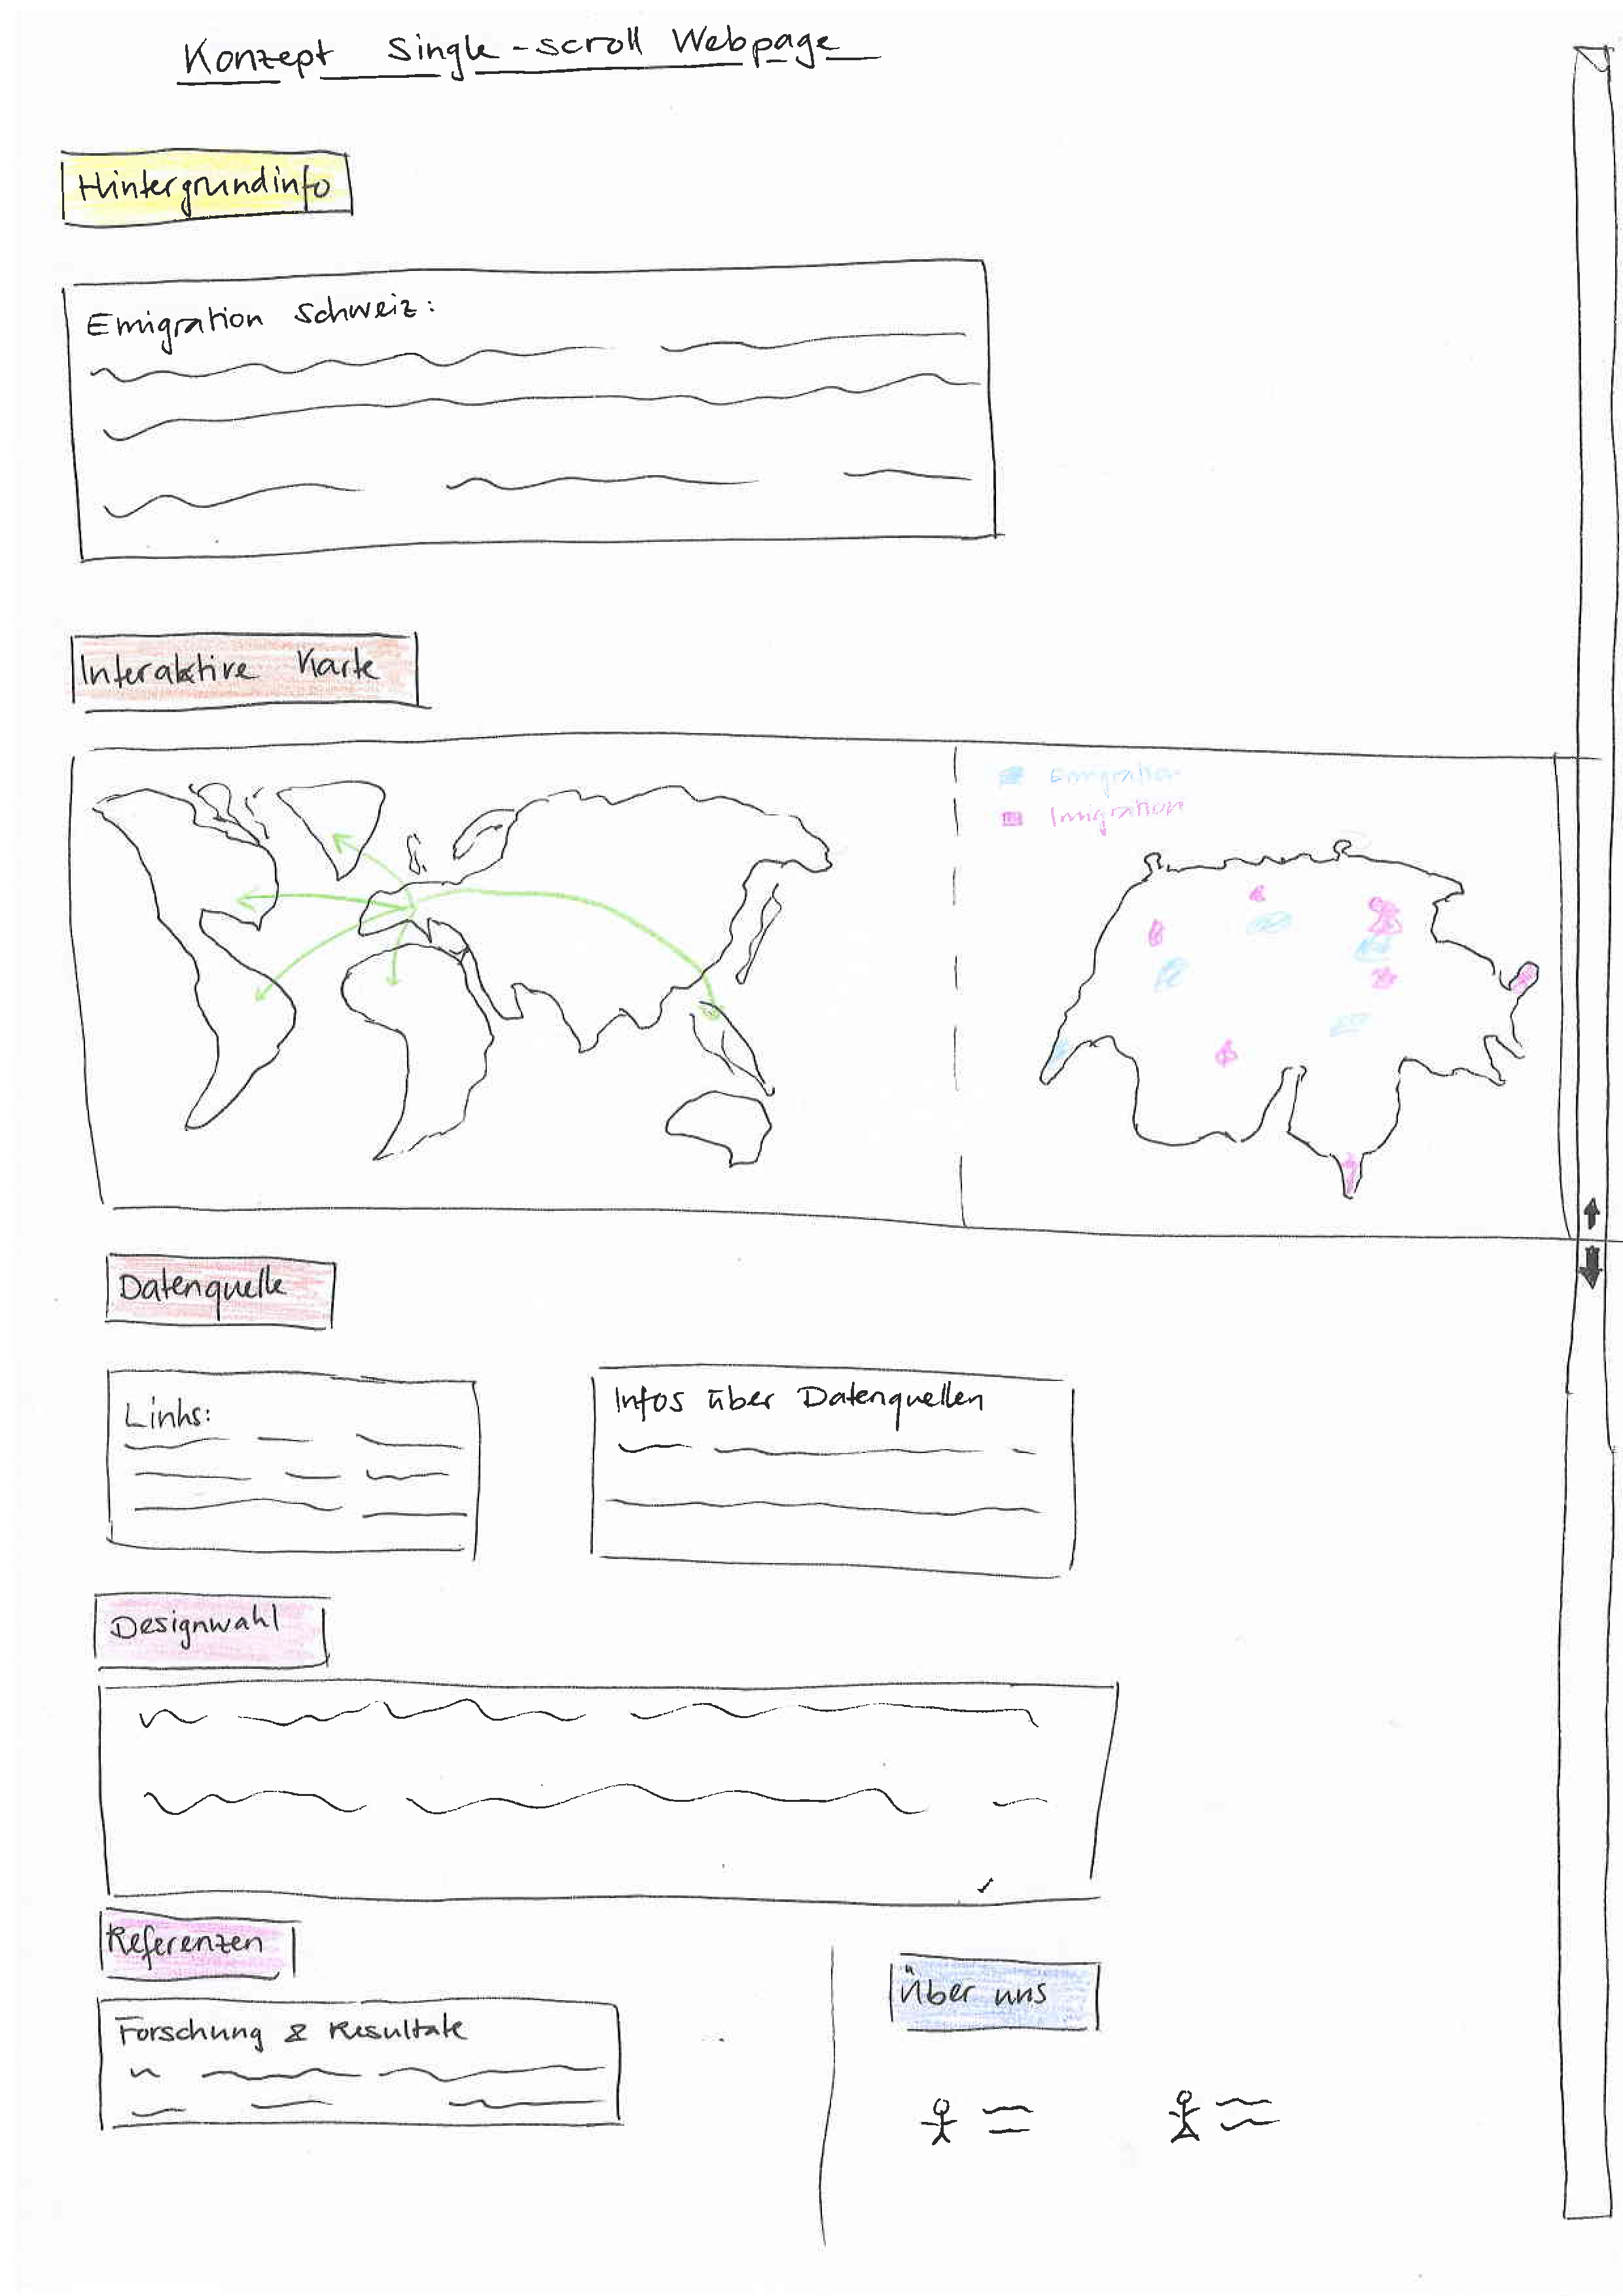 Konzept Single-scroll Webpage
Hintergrundinfo
Emigration Schweiz:
Interaktive Karte
Emigration
Imigration
Datenquelle
Links:
Infos über Datenquellen
Designwahl
Referenzen
Forschung & Resultate
Über uns